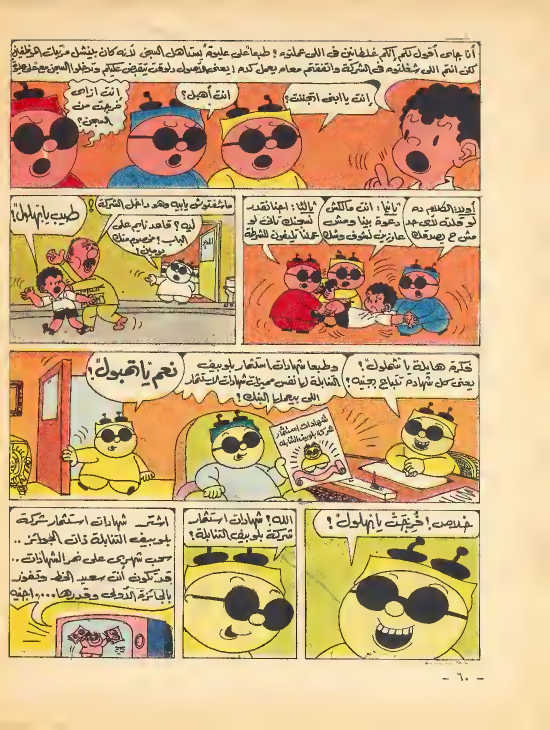 أنا جاى أقول لكم إنكم غلطانين فى اللى عملتوه! طبعاً على عليوة يستاهل السجن لأنه كان بينشل مرتبات الموظفين
لكن انتم اللى شغلتوه فى الشركة واتفقتم معاه يعمل كده! يعنى
إنت يا ابنى اتجننت؟
انت أهبل؟
إنت ازاى
خرجت من
السجن؟
أولاً: الكلام ده
لو قلته لأى حد
مش ح يصدقك
ثانياً: انت مالكش
دعوة بينا ومش
عايزين نشوف وشك
ثالثاً: احنا نقدر
نسجنك تانى لو
عملنا تليفون للشرطة
ماشفتوش يا بيه وهو داخل الشركة؟
ليه؟ قاعد نايم على
الباب؟ مخصوم منك
يومين!
طيب يا بهلول!
فكرة هايلة يا شملول!
يعنى كل شهادة تتباع بجنيه؟
وطبعا شهادات استثمار بلوبيف
التنابلة لها نفس مميزات شهادات الاستثمار
اللى بيعملها البنك!
نعم يا تمبول؟
شهادات استثمار
شركة بلوبيف التنابلة
خلاص! فُرِجَتْ يا بهلول!
الله؟ شهادات استثمار
شركة بلوبيف التنابلة؟
اشتر شهادات استثمار شركة
بلوبيف التنابلة ذات الجوائز..
سحب شهرى على نمر الشهادات..
قد تكون أنت سعيد الحظ وتفوز
بالجائزة الأولى وقدرها جنيه
- ٦٠ -